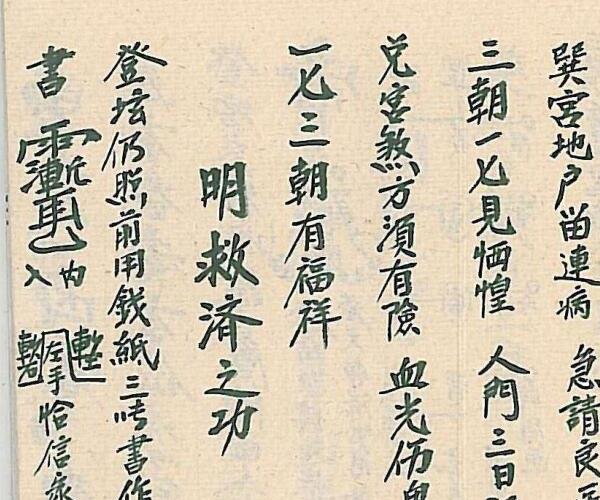 巽宮地戶苗連病 急請良
三朝一七見恓惶 人門三日
兌宮煞方須有險 血光伤
一七三朝有福祥
明救济之功
登坛仍照前用錢紙三 書作
書 内入 左手恰信